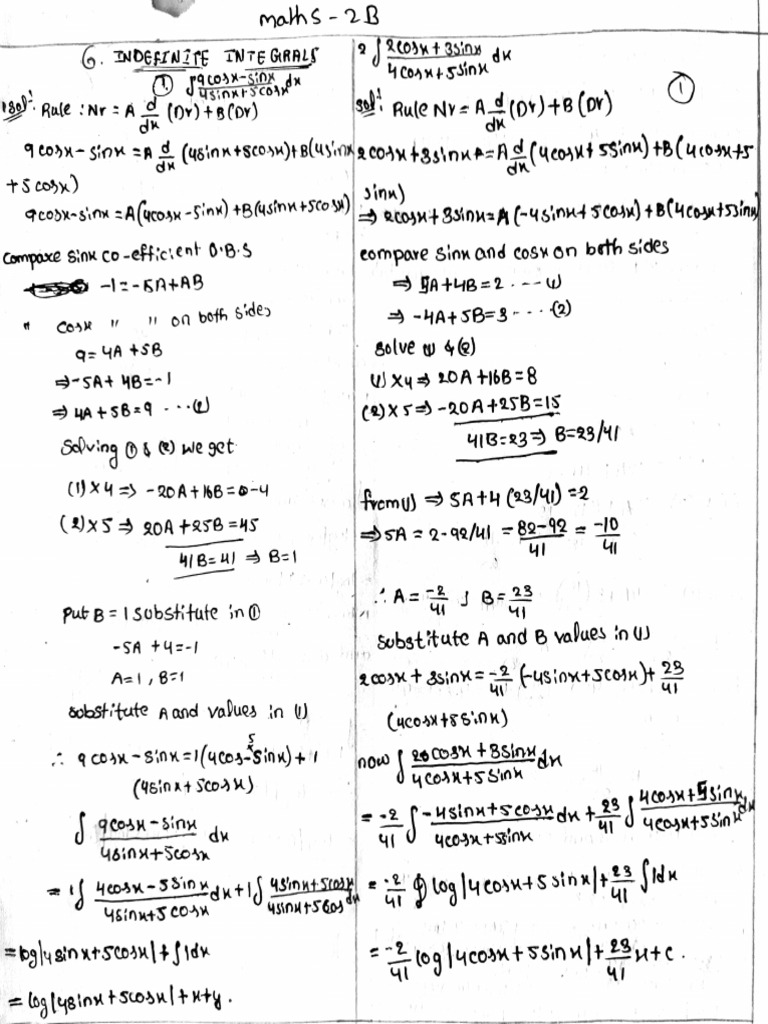 maths - 2B
6. INDEFINITE INTEGRALS
① ∫ 9cosx-sinx / 4sinx+5cosx dx
Sol: Rule : Nr = A d/dx (Dr) + B(Dr)
9cosx-sinx = A d/dx (4sinx+5cosx)+B(4sinx
+5cosx)
9cosx-sinx = A(4cosx-sinx) + B(4sinx+5cosx)
Compare sinx co-efficient O.B.S
-1=-5A+AB
" cosx " " on both sides
9=4A+5B
⇒-5A+ 4B=-1
⇒ 4A+5B=9 ---(2)
Solving ① & (2) we get
(1)x4 ⇒ -20A+16B=-4
(2)x5 ⇒ 20A+25B=45
41B=41 ⇒ B=1
Put B=1 substitute in ①
-5A +4=-1
A=1, B=1
substitute A and values in (1)
∴ 9cosx-sinx=1(4cos-5sinx)+1
(4sinx+5cosx)
∫ 9cosx-sinx / 4sinx+5cosx dx
= 1∫ 4cosx-5sinx / 4sinx+5cosx dx+1∫ 4sinx+5cosx / 4sinx+5cos dx
=log|4sinx+5cosx|+∫1dx
= log|4sinx+5cosx|+x+y.
2 ∫ 2cosx+3sinx / 4cosx+5sinx dx
①
Sol: Rule Nr= A d/dx (Dr)+B(Dr)
2cosx+3sinx=A d/dx (4cosx+5sinx)+B(4cosx+5
sinx)
⇒ 2cosx+3sinx=A(-4sinx+5cosx)+B(4cosx+5sinx)
compare sinx and cosx on both sides
⇒ 5A+4B=2 ---(1)
⇒ -4A+5B=3 ---(2)
solve (1) & (2)
(1)x4 ⇒ 20A+16B=8
(2)x5 ⇒ -20A+25B=15
41B=23 ⇒ B=23/41
from(1) ⇒ 5A+4(23/41)=2
⇒5A = 2-92/41 = 82-92/41 = -10/41
∴ A= -2/41 ; B= 23/41
substitute A and B values in (1)
2cosx+3sinx= -2/41 (-4sinx+5cosx)+ 23/41
(4cosx+5sinx)
now ∫ 2cosx+3sinx / 4cosx+5sinx dx
= -2/41 ∫ -4sinx+5cosx / 4cosx+5sinx dx + 23/41 ∫ 4cosx+5sinx / 4cosx+5sinx dx
= -2/41 log|4cosx+5sinx|+ 23/41 ∫1dx
= -2/41 log|4cosx+5sinx|+ 23/41 x+c.